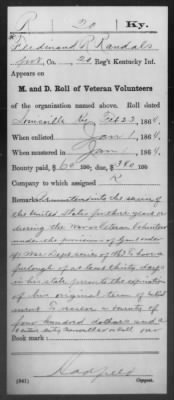 R 20 Ky.
Ferdinand R. Randals
, Co. , 20 Reg't Kentucky Inf.
Appears on
M. and D. Roll of Veteran Volunteers
of the organization named above. Roll dated
Ky, Feb 23, 1864.
When enlisted Jan 1, 1864.
When mustered in Jan 1, 1864
Bounty paid, $60 100; due, $340 100
Company to which assigned K
Remarks: mustered into the service of
the United States for three years or
during the war as Veteran Volunteer
under the provisions of order
of War Dept. series of 1863 to have a
furlough of at least thirty days
in his state previous to the expiration
of his original term of enlist
ment & receive a bounty of
four hundred dollars and a

Book mark:
(941) Copyist.